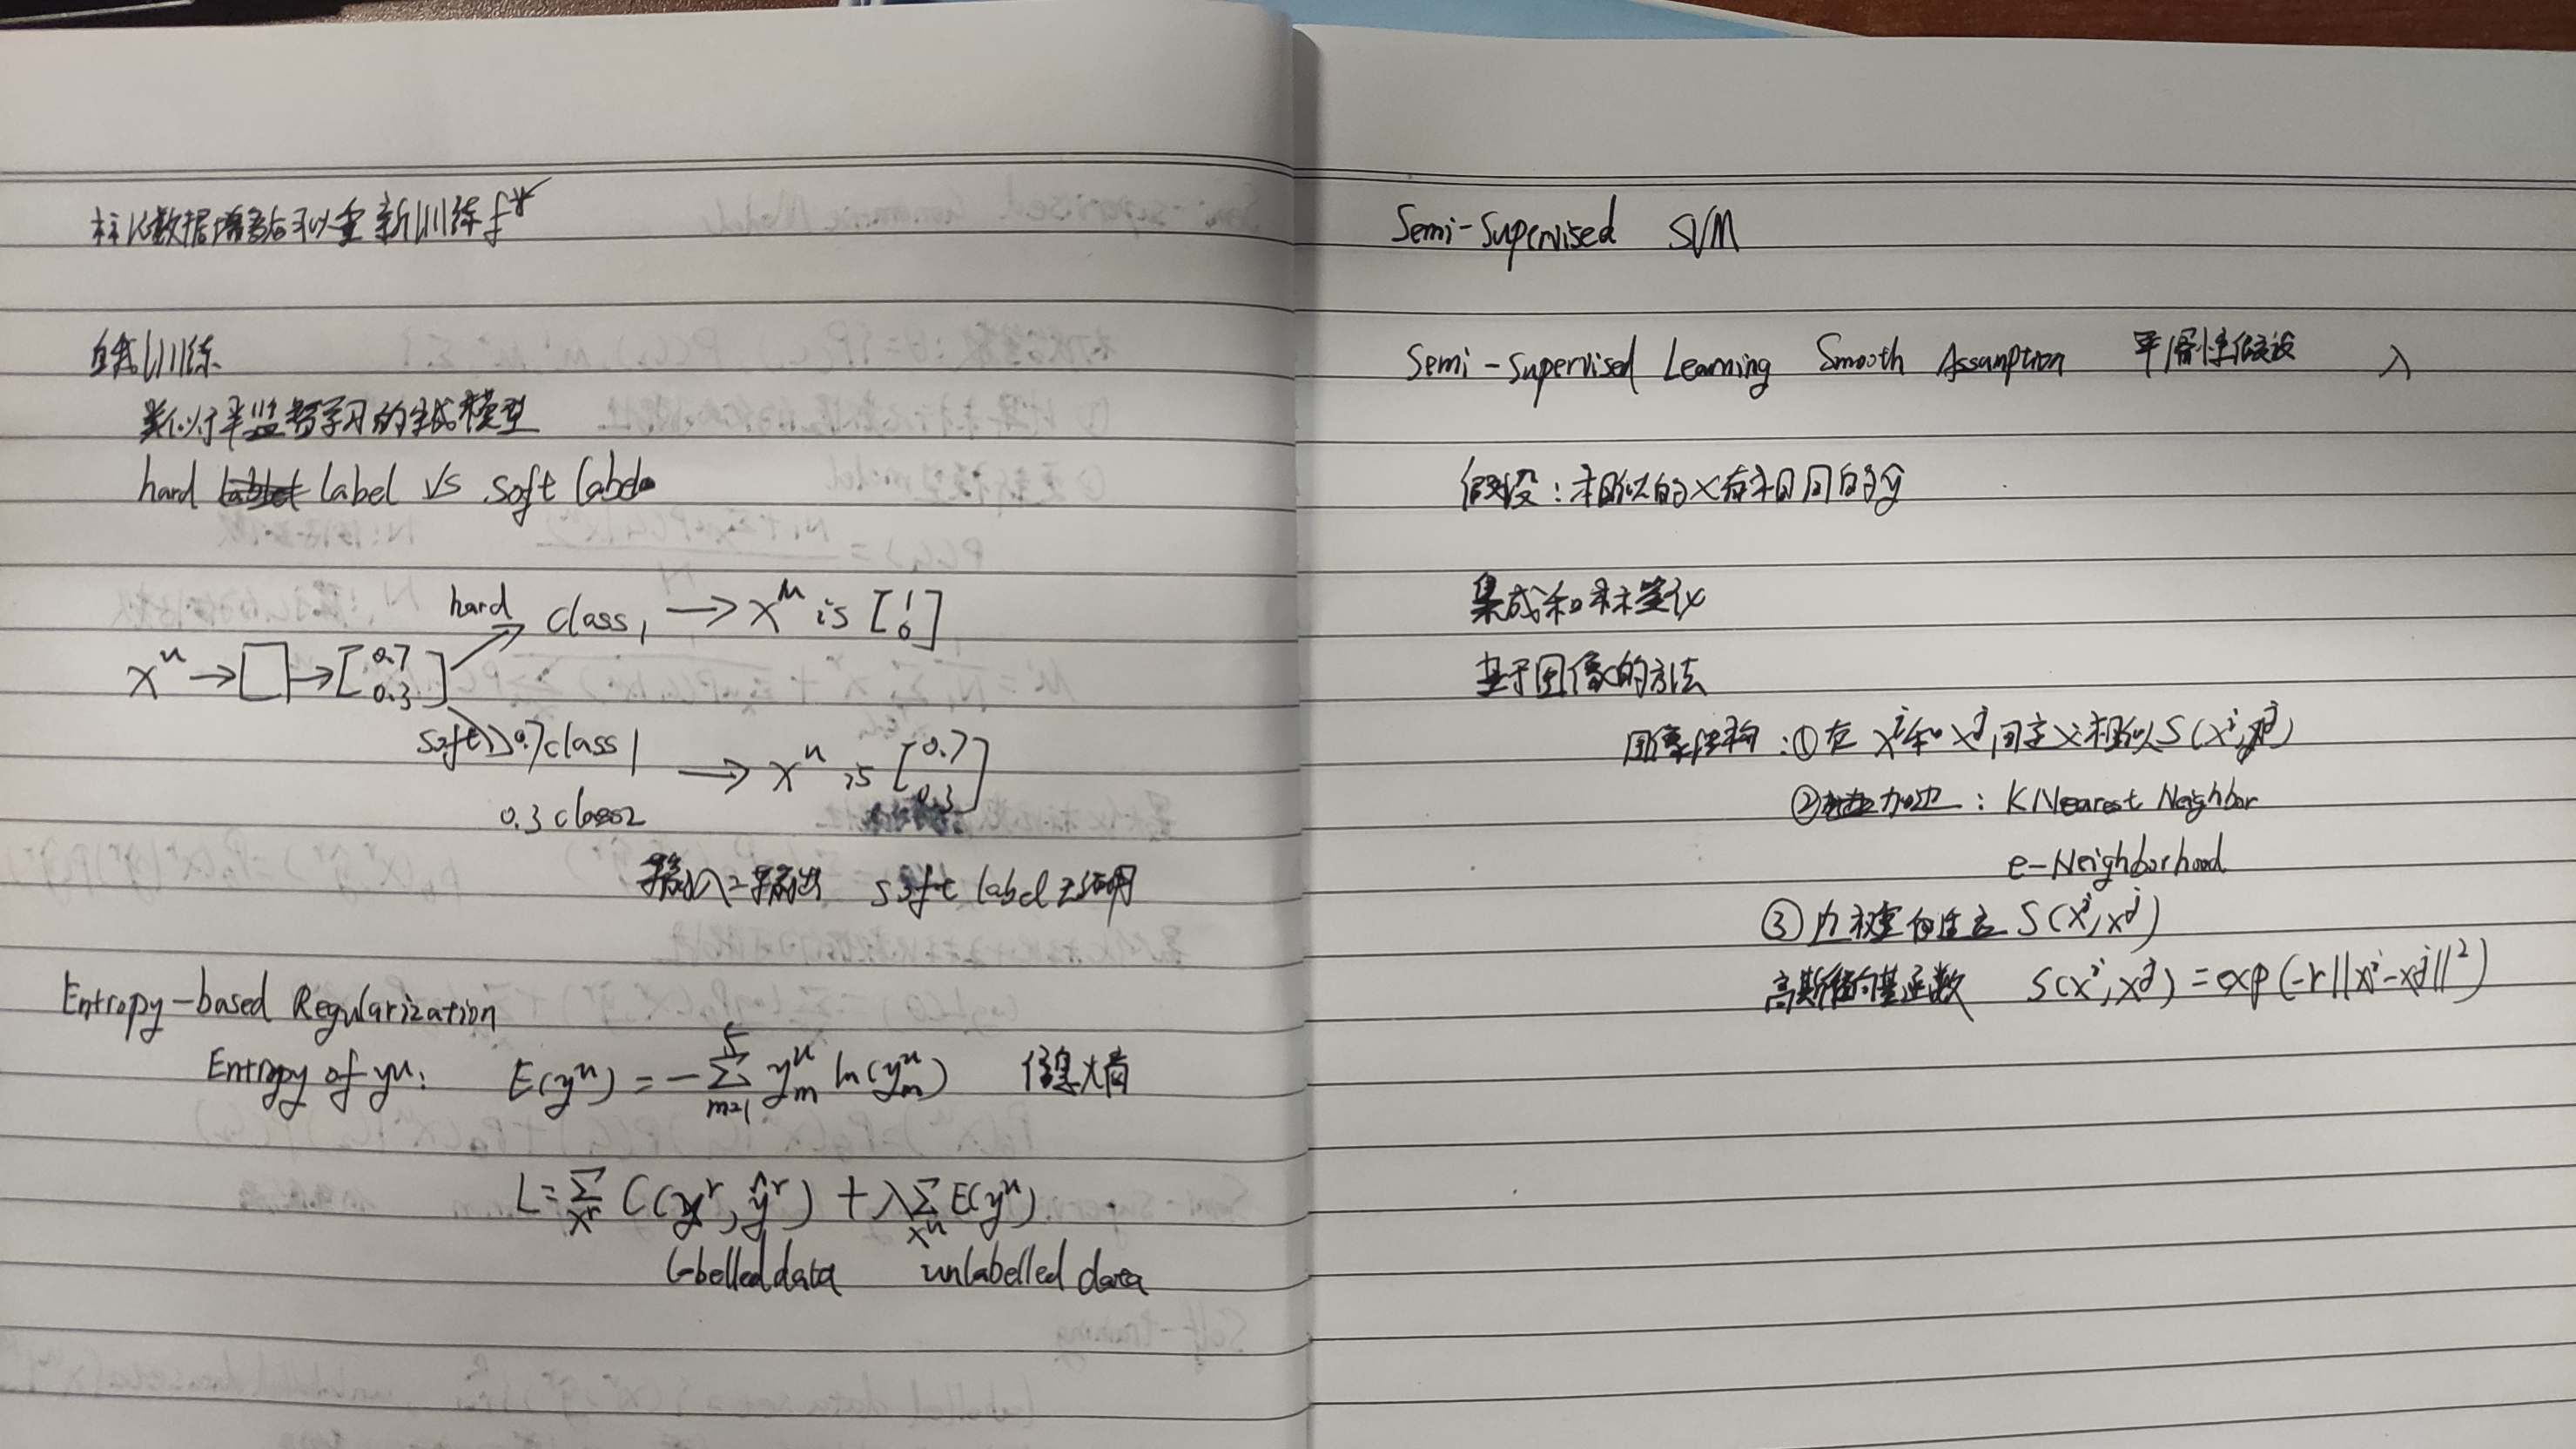 标记数据增多后可以重新训练f*
自我训练
类似于半监督学习的生成模型
hard label vs soft label
hard class 1 → x^u is [1 0]
x^u → □ → [0.7 0.3]
soft 0.7 class 1
→ x^u is [0.7 0.3]
0.3 class 2
输入=输出 soft label 无作用
Entropy-based Regularization
Entropy of y^u: E(y^u) = -∑_{m=1}^{5} y_m^u ln(y_m^u) 信息熵
L = ∑_{x^r} C(y^r, ŷ^r) + λ∑_{x^u} E(y^u)
labelled data unlabelled data
Semi-Supervised SVM
Semi-Supervised Learning Smooth Assumption 平滑性假设 λ
假设：相似的x有相同的ŷ
集成和标签化
基于图像的方法
图像结构：①在x^i和x^j间定义相似S(x^i, x^j)
②加边：K Nearest Neighbor
e-Neighborhood
③ S(x^i, x^j)
高斯径向基函数 S(x^i, x^j) = exp(-r||x^i - x^j||^2)